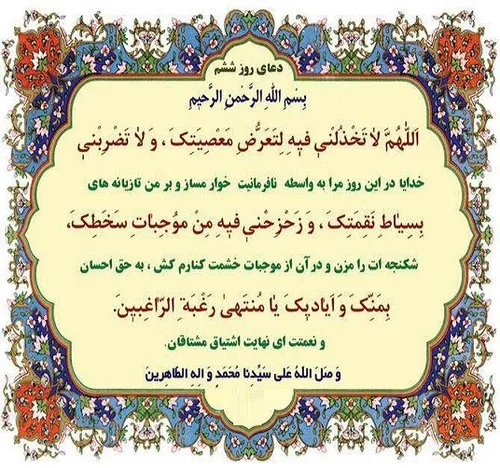 دعای روز ششم
بِسْمِ اللهِ الرَّحْمنِ الرَّحیمِ
اَللّهُمَّ لا تَخْذُلْنی فیهِ لِتَعَرُّضِ مَعْصِیَتِکَ ، وَ لا تَضْرِبْنی
خدایا در این روز مرا به واسطه نافرمانیت خوار مساز و بر من تازیانه های
بِسِیاطِ نَقِمَتِکَ ، وَ زَحْزِحْنی فیهِ مِنْ مُوجِباتِ سَخَطِکَ،
شکنجه ات را مزن و در آن از موجبات خشمت کنارم کش ، به حق احسان
بِمَنِّکَ وَ اَیادیکَ یا مُنتَهی رَغْبَةِ الرّاغِبینَ.
و نعمتت ای نهایت اشتیاق مشتاقان.
وَ صَلَ اللهُ عَلی سَیِّدِنا مُحَمَدٍ وَ الِهِ الطّاهِرینَ